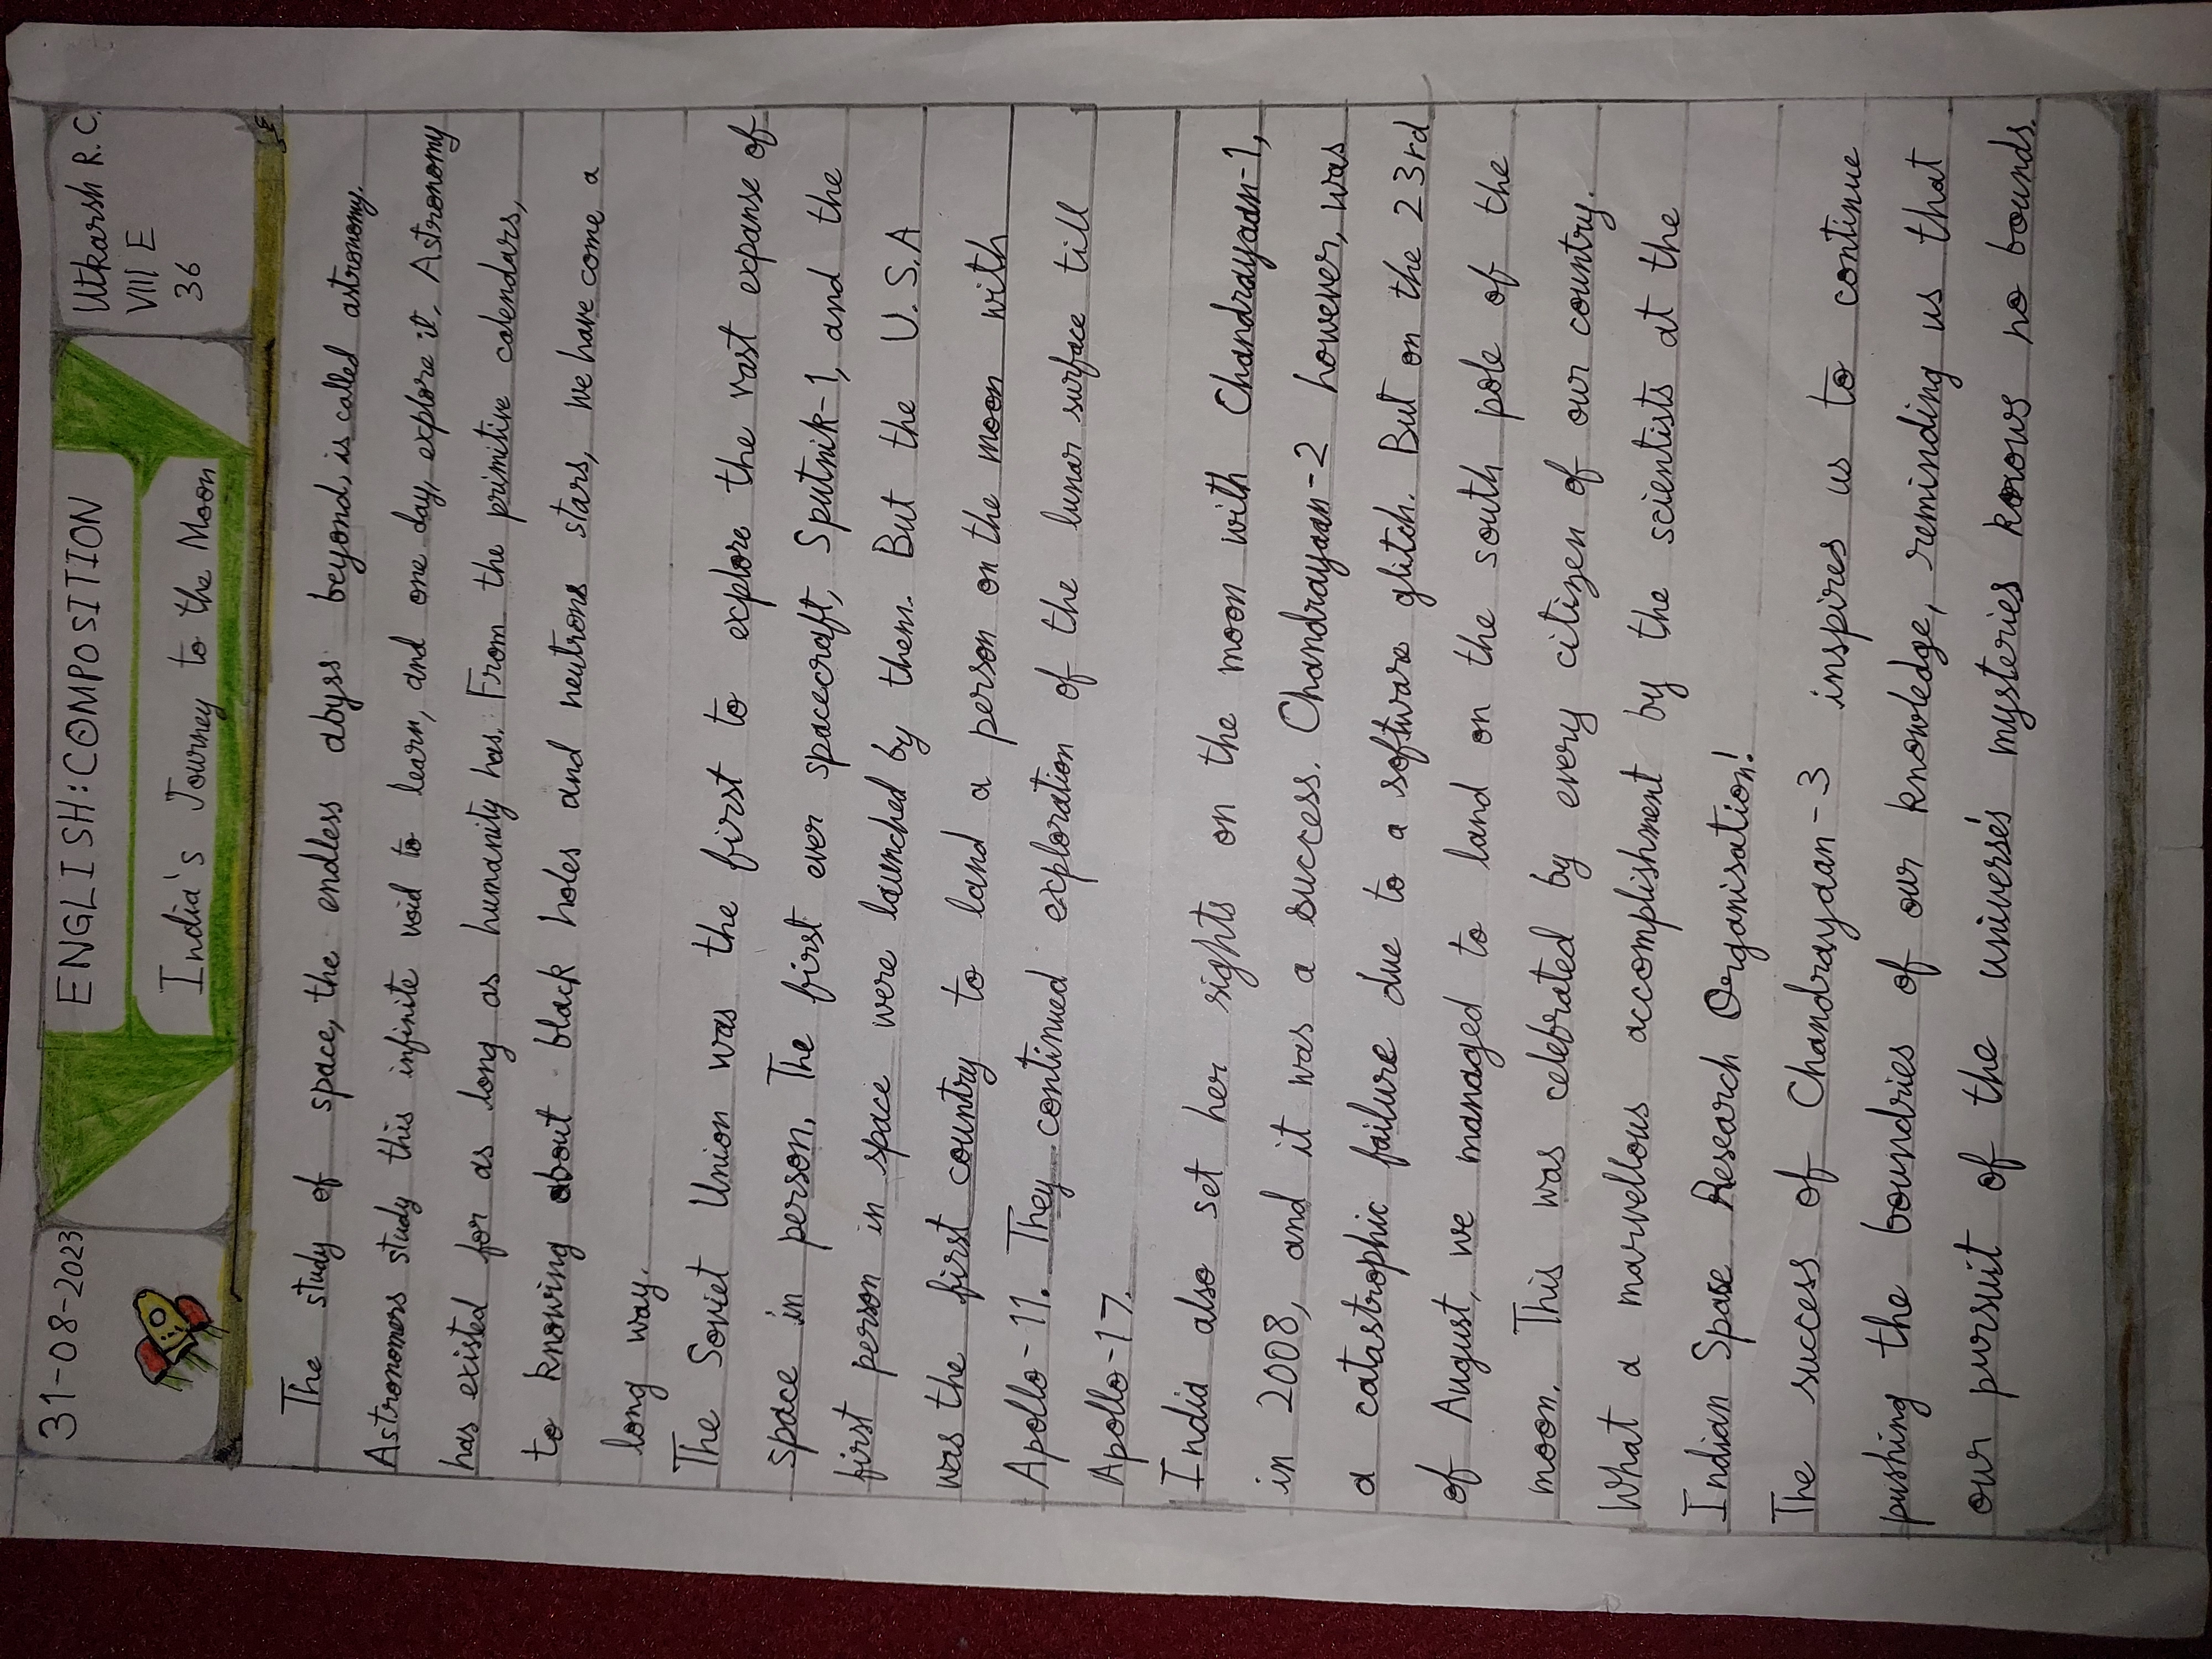 31-08-2023
ENGLISH: COMPOSITION
India's Journey to the Moon
Utkarsh R. C.
VIII E
36
The study of space, the endless abyss beyond, is called astronomy.
Astronomers study this infinite void to learn, and one day, explore it. Astronomy
has existed for as long as humanity has. From the primitive calendars,
to knowing about black holes and neutrons stars, we have come a
long way.
The Soviet Union was the first to explore the vast expanse of
space in person. The first ever spacecraft, Sputnik-1, and the
first person in space were launched by them. But the U.S.A
was the first country to land a person on the moon with
Apollo-11. They continued exploration of the lunar surface till
Apollo-17.
India also set her sights on the moon with Chandrayaan-1,
in 2008, and it was a success. Chandrayaan-2 however, was
a catastrophic failure due to a software glitch. But on the 23rd
of August, we managed to land on the south pole of the
moon. This was celebrated by every citizen of our country.
What a marvellous accomplishment by the scientists at the
Indian Space Research Organisation!
The success of Chandrayaan-3 inspires us to continue
pushing the boundries of our knowledge, reminding us that
our pursuit of the universe's mysteries knows no bounds.